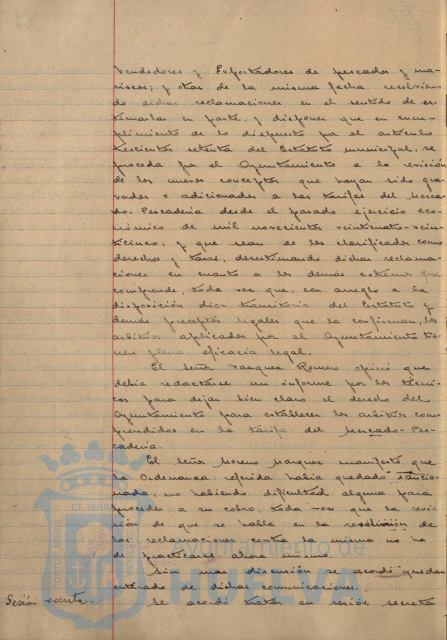 Vendedores y Exportadores de pescados y ma-
riscos; y otra de la misma fecha resolvien-
do dichas reclamaciones en el sentido de es-
timarlas en parte, y disponer que en cum-
plimiento de lo dispuesto por el artículo
trescientos setenta del Estatuto municipal, se
proceda por el Ayuntamiento a la revisión
de los nuevos conceptos que hayan sido gra-
vados o adicionados a las tarifas del Merca-
do Pescadería desde el pasado ejercicio eco-
nómico de mil novecientos veinticuatro-vein-
ticinco, y que sean de los clasificados como
derechos y tasas, desestimando dichas reclama-
ciones en cuanto a los demás extremos que
comprende, toda vez que, con arreglo a la
disposición diez transitoria del Estatuto y
demás preceptos legales que la confirman, los
arbitrios aplicados por el Ayuntamiento tie-
nen plena eficacia legal.
El Señor Vazquez Romero opinó que
debía redactarse un informe por los técni-
cos para dejar bien claro el derecho del
Ayuntamiento para establecer los arbitrios com-
prendidos en la tarifa del Mercado-Pes-
cadería.
El Señor Moreno Marquez manifestó que
la Ordenanza referida había quedado sancio-
nada, no habiendo dificultad alguna para
proceder a su cobro, toda vez que la revi-
sión de que se habla en la resolución de
las reclamaciones contra la misma no ha
de practicarse ahora mismo.
Sin mas discusión se acordó quedar
enterado de dichas comunicaciones.
Sesión secreta. Se acordó tratar en sesión secreta
Ayuntamiento de
HUELVA